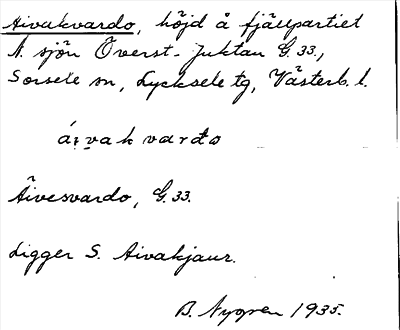 Aivakvardo, höjd å fjällpartiet
N. sjön Överst-Juktan G. 33.,
Sorsele sn, Lycksele tg, Västerb. l.
ái̯vakvarđo
Äivesvardo, G. 33.
Ligger S. Aivakjaur.
B. Nygren 1935.